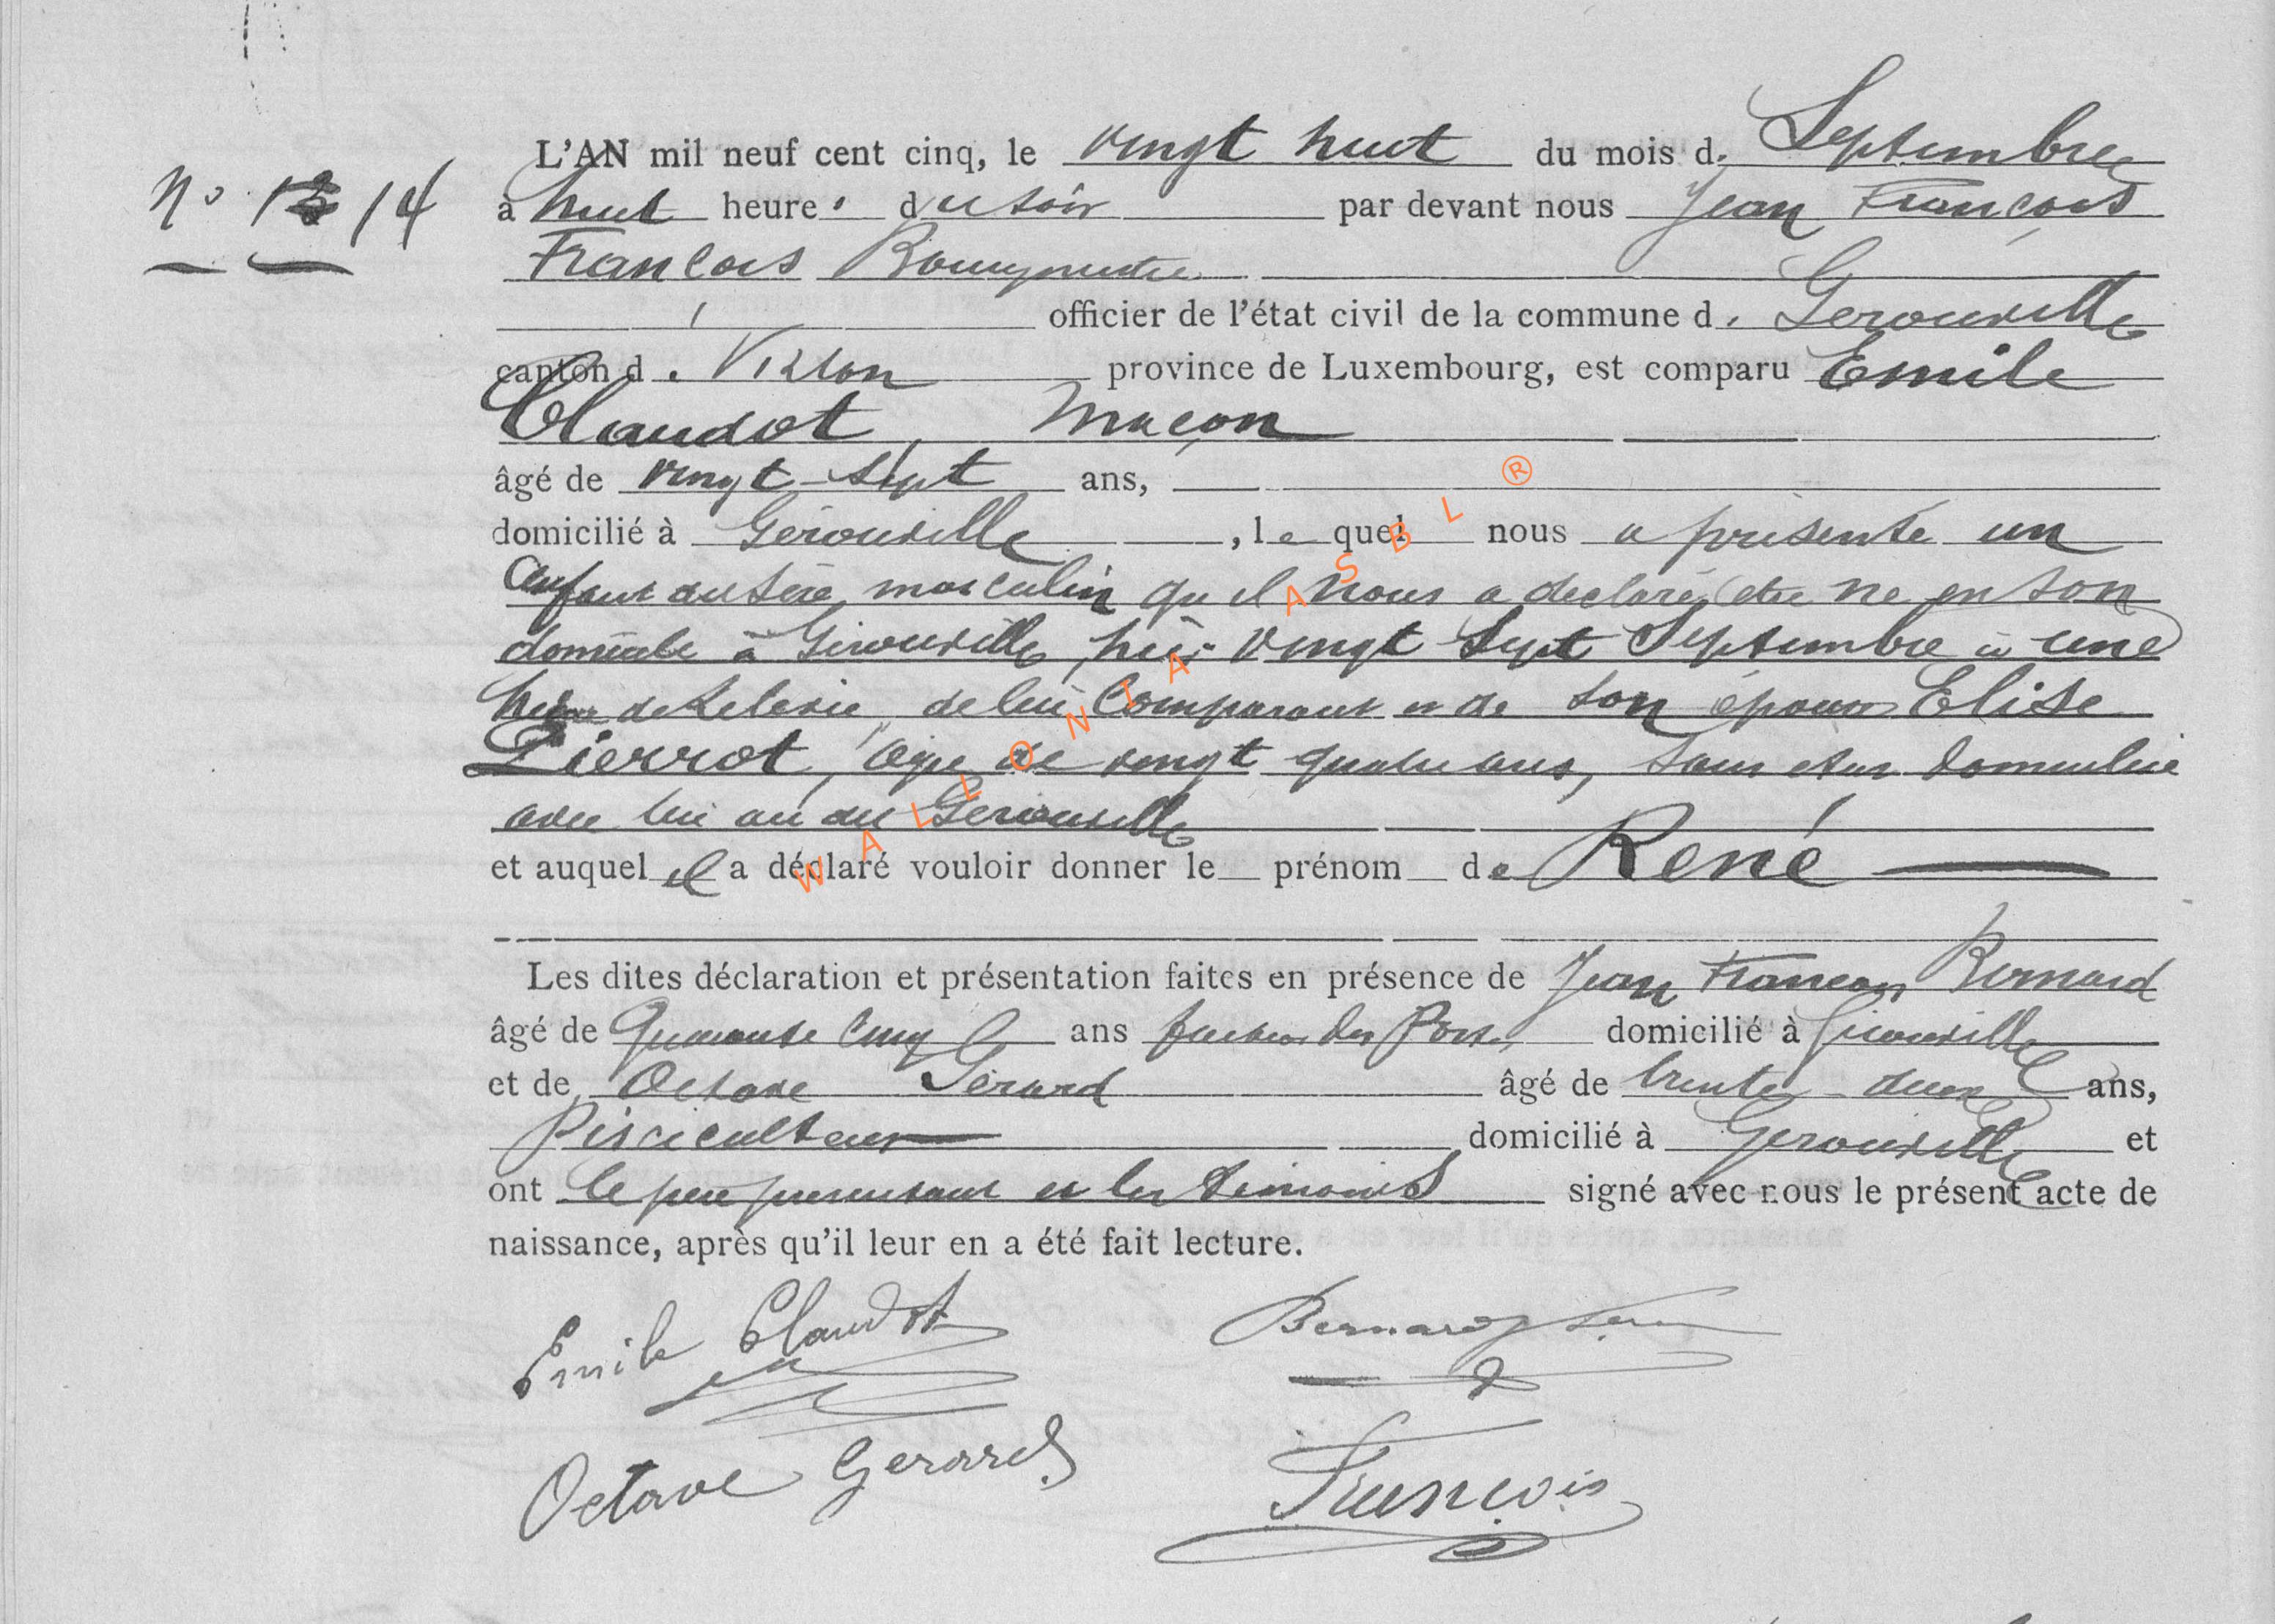 L'AN mil neuf cent cinq, le vingt huit du mois de Septembre
N° 14 à huit heures du soir par devant nous Jean François
François Bourgmestre
officier de l'état civil de la commune de Gérouville
canton de Virton province de Luxembourg, est comparu Emile
Claudot, maçon
âgé de vingt-sept ans,
domicilié à Gérouville, le quel nous a présenté un
enfant du sexe masculin qu'il nous a déclaré être né en son
domicile à Gérouville, hier vingt sept Septembre à une
heure de relevée de lui Comparant et de son épouse Elise
Pierrot, âgée de vingt quatre ans, sans état domiciliée
avec lui au dit Gérouville
et auquel il a déclaré vouloir donner le prénom de René
Les dites déclaration et présentation faites en présence de Jean François Bernard
âgé de Quarante Cinq ans facteur des Postes domicilié à Gérouville
et de Octave Gérard âgé de trente-deux ans,
Pisciculteur domicilié à Gérouville et
ont le père présentant et les témoins signé avec nous le présent acte de
naissance, après qu'il leur en a été fait lecture.
Emile Claudot Bernard
Octave Gerard François
WALLONIA ASBL ®